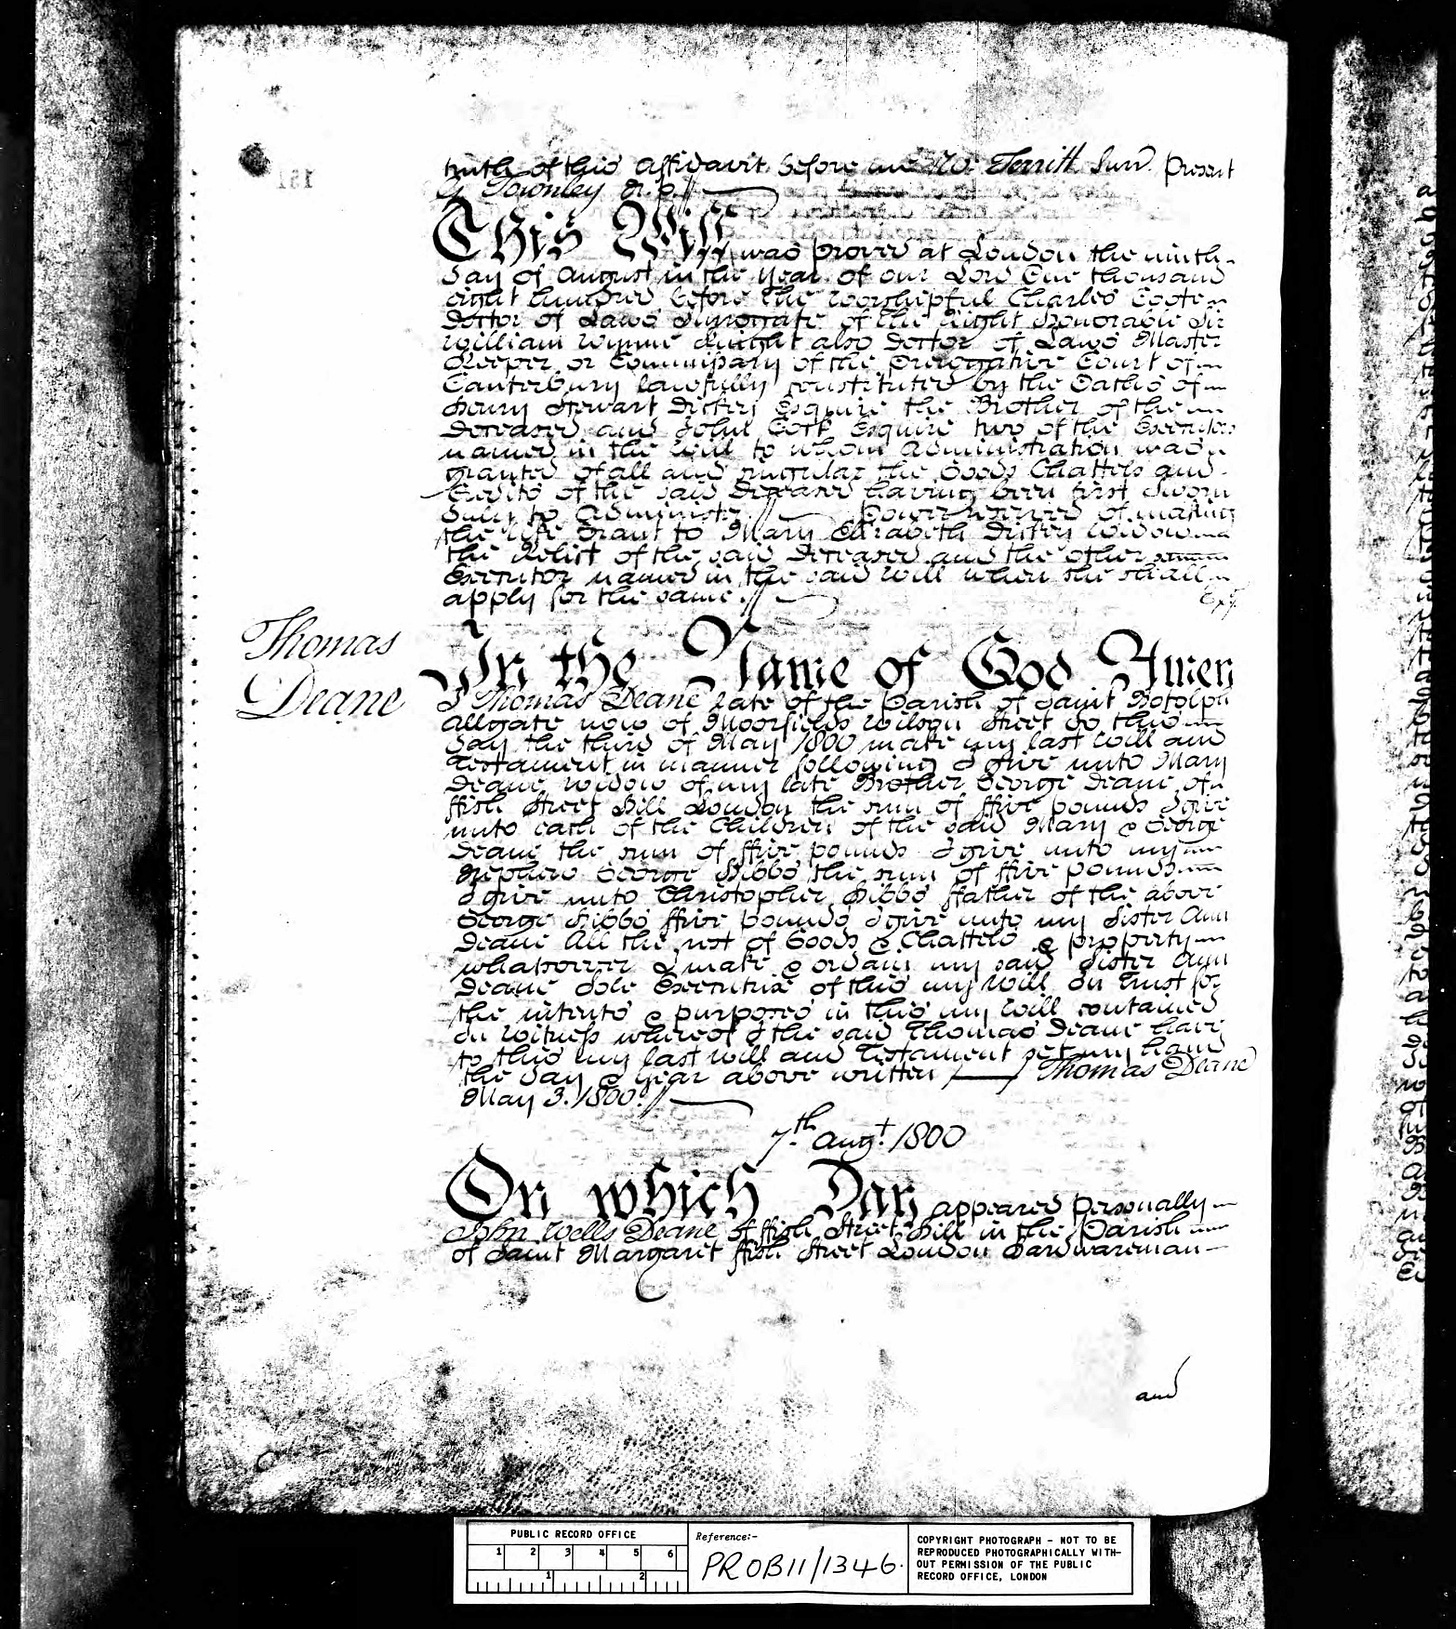 truth of this Affidavit before me Territt Surr. present
G Townley N.P.
This Will was proved at London the ninth
day of August in the Year of our Lord One thousand
eight hundred before the Worshipful Charles Coote
Doctor of Laws Surrogate of the Right Honorable Sir
William Wynne Knight also Doctor of Laws Master
Keeper or Commissary of the Prerogative Court of
Canterbury lawfully constituted by the Oaths of
Henry Stewart Esquire the Brother of the
Deceased and John Esquire two of the Executors
named in the Will to whom Administration was
granted of all and singular the Goods Chattels and
Credits of the said Deceased having been first Sworn
duly to Administer Power reserved of making
the like Grant to Mary Elizabeth Widow
the Relict of the said Deceased and the other
Executor named in the said Will when she shall
apply for the same.
Exd.
Thomas
Deane
In the Name of God Amen
I Thomas Deane late of the Parish of Saint Botolph
Allgate now of Moorfields Wilson Street do this
day the third of May 1800 make my last Will and
Testament in manner following I give unto Mary
Deane widow of my late Brother George Deane of
ffish Street Hill London the sum of ffive pounds I give
unto each of the Children of the said Mary & George
Deane the sum of ffive pounds I give unto my
Nephew George Hibbs the sum of ffive pounds
I give unto Christopher Hibbs ffather of the above
George Hibbs ffive pounds I give unto my Sister Ann
Deane All the rest of Goods & Chattels & property
whatsoever I make & ordain my said Sister Ann
Deane Sole Executrix of this my Will In trust for
the intents & purposes in this my Will contained
In Witness whereof I the said Thomas Deane have
to this my last Will and Testament set my hand
the day & year above written Thomas Deane
May 3. 1800.
7th Augt. 1800
On which Day appeared Personally
John Wells Deane of ffish Street Hill in the Parish
of Saint Margaret ffish Street London Hardwareman
and
PUBLIC RECORD OFFICE
1 2 3 4 5 6
1 2
Reference:-
PROB 11/1346
COPYRIGHT PHOTOGRAPH - NOT TO BE
REPRODUCED PHOTOGRAPHICALLY WITH-
OUT PERMISSION OF THE PUBLIC
RECORD OFFICE, LONDON